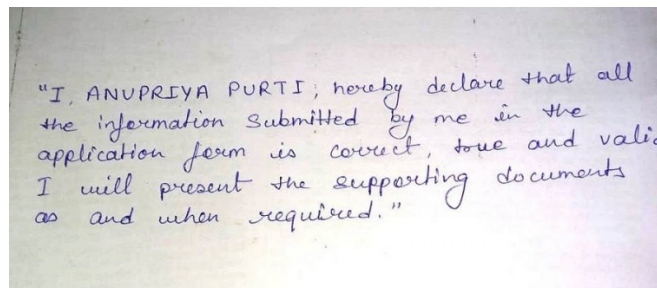 "I, ANUPRIYA PURTI, hereby declare that all
the information submitted by me in the
application form is correct, true and valid
I will present the supporting documents
as and when required."